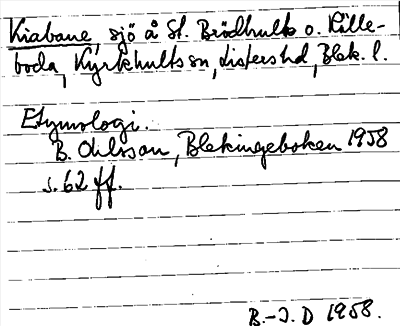 Kiabane, sjö å St. Brödhults o. Kille-
boda, Kyrkhults sn, Listers hd, Blek. l.
Etymologi.
B. Ohlsson, Blekingeboken 1958
s. 62 ff.
B.-I. D 1958.